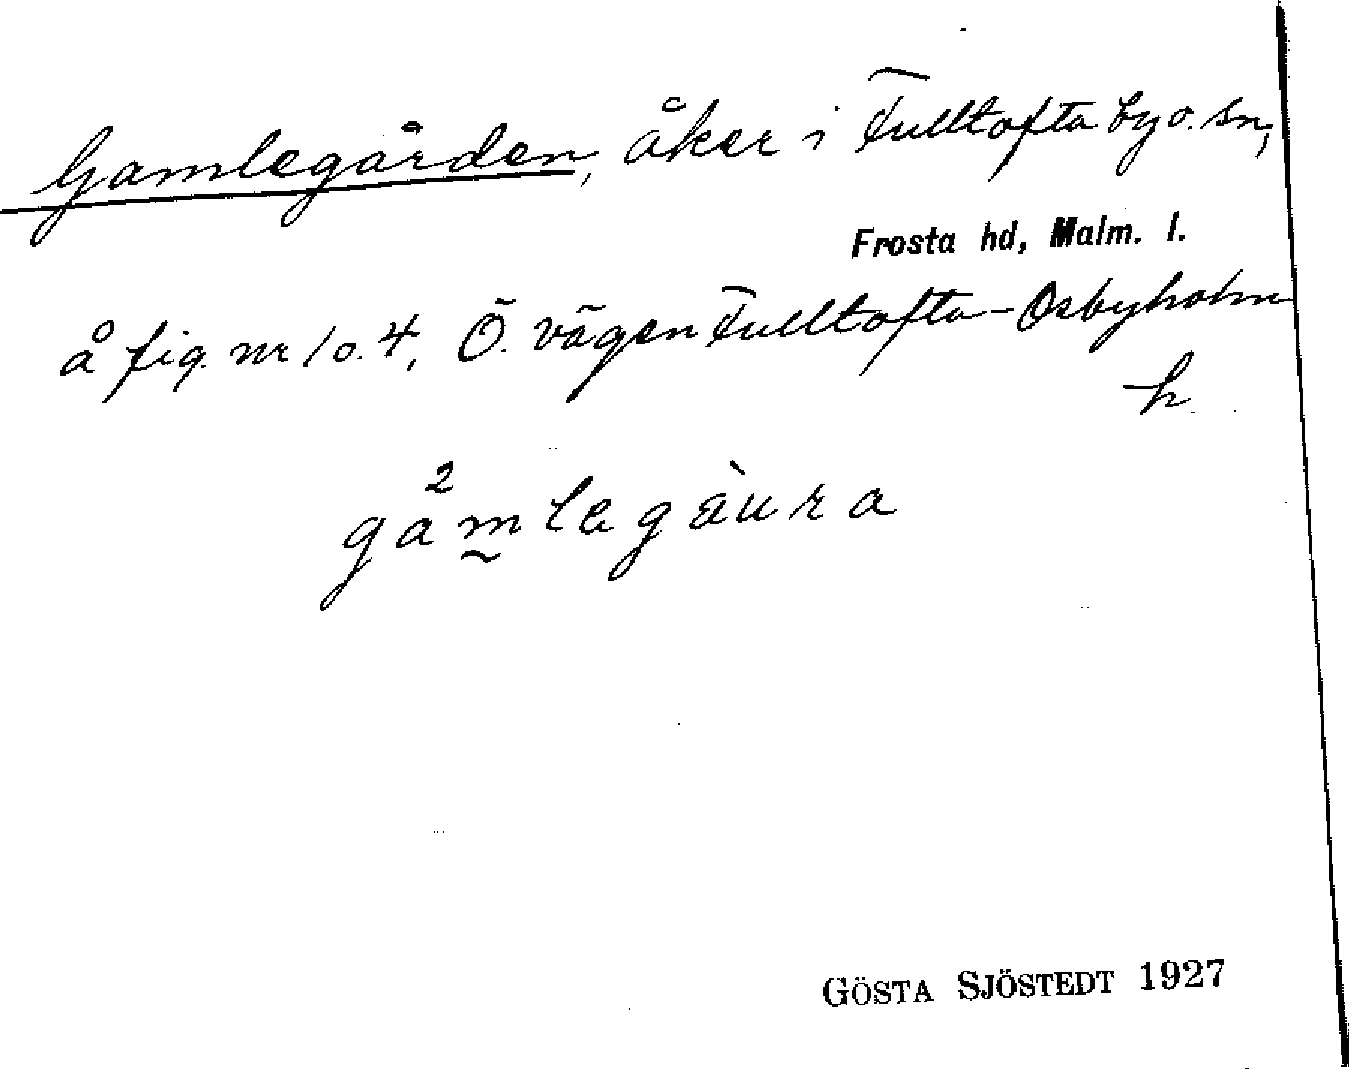 Gamlegården, åker i Fulltofta by o. sn,
Frosta hd, Malm. l.
å fig. nr 1 o. 4, Ö. vägen Fulltofta-Osbyholm
h
gamlegäura
GÖSTA SJÖSTEDT 1927